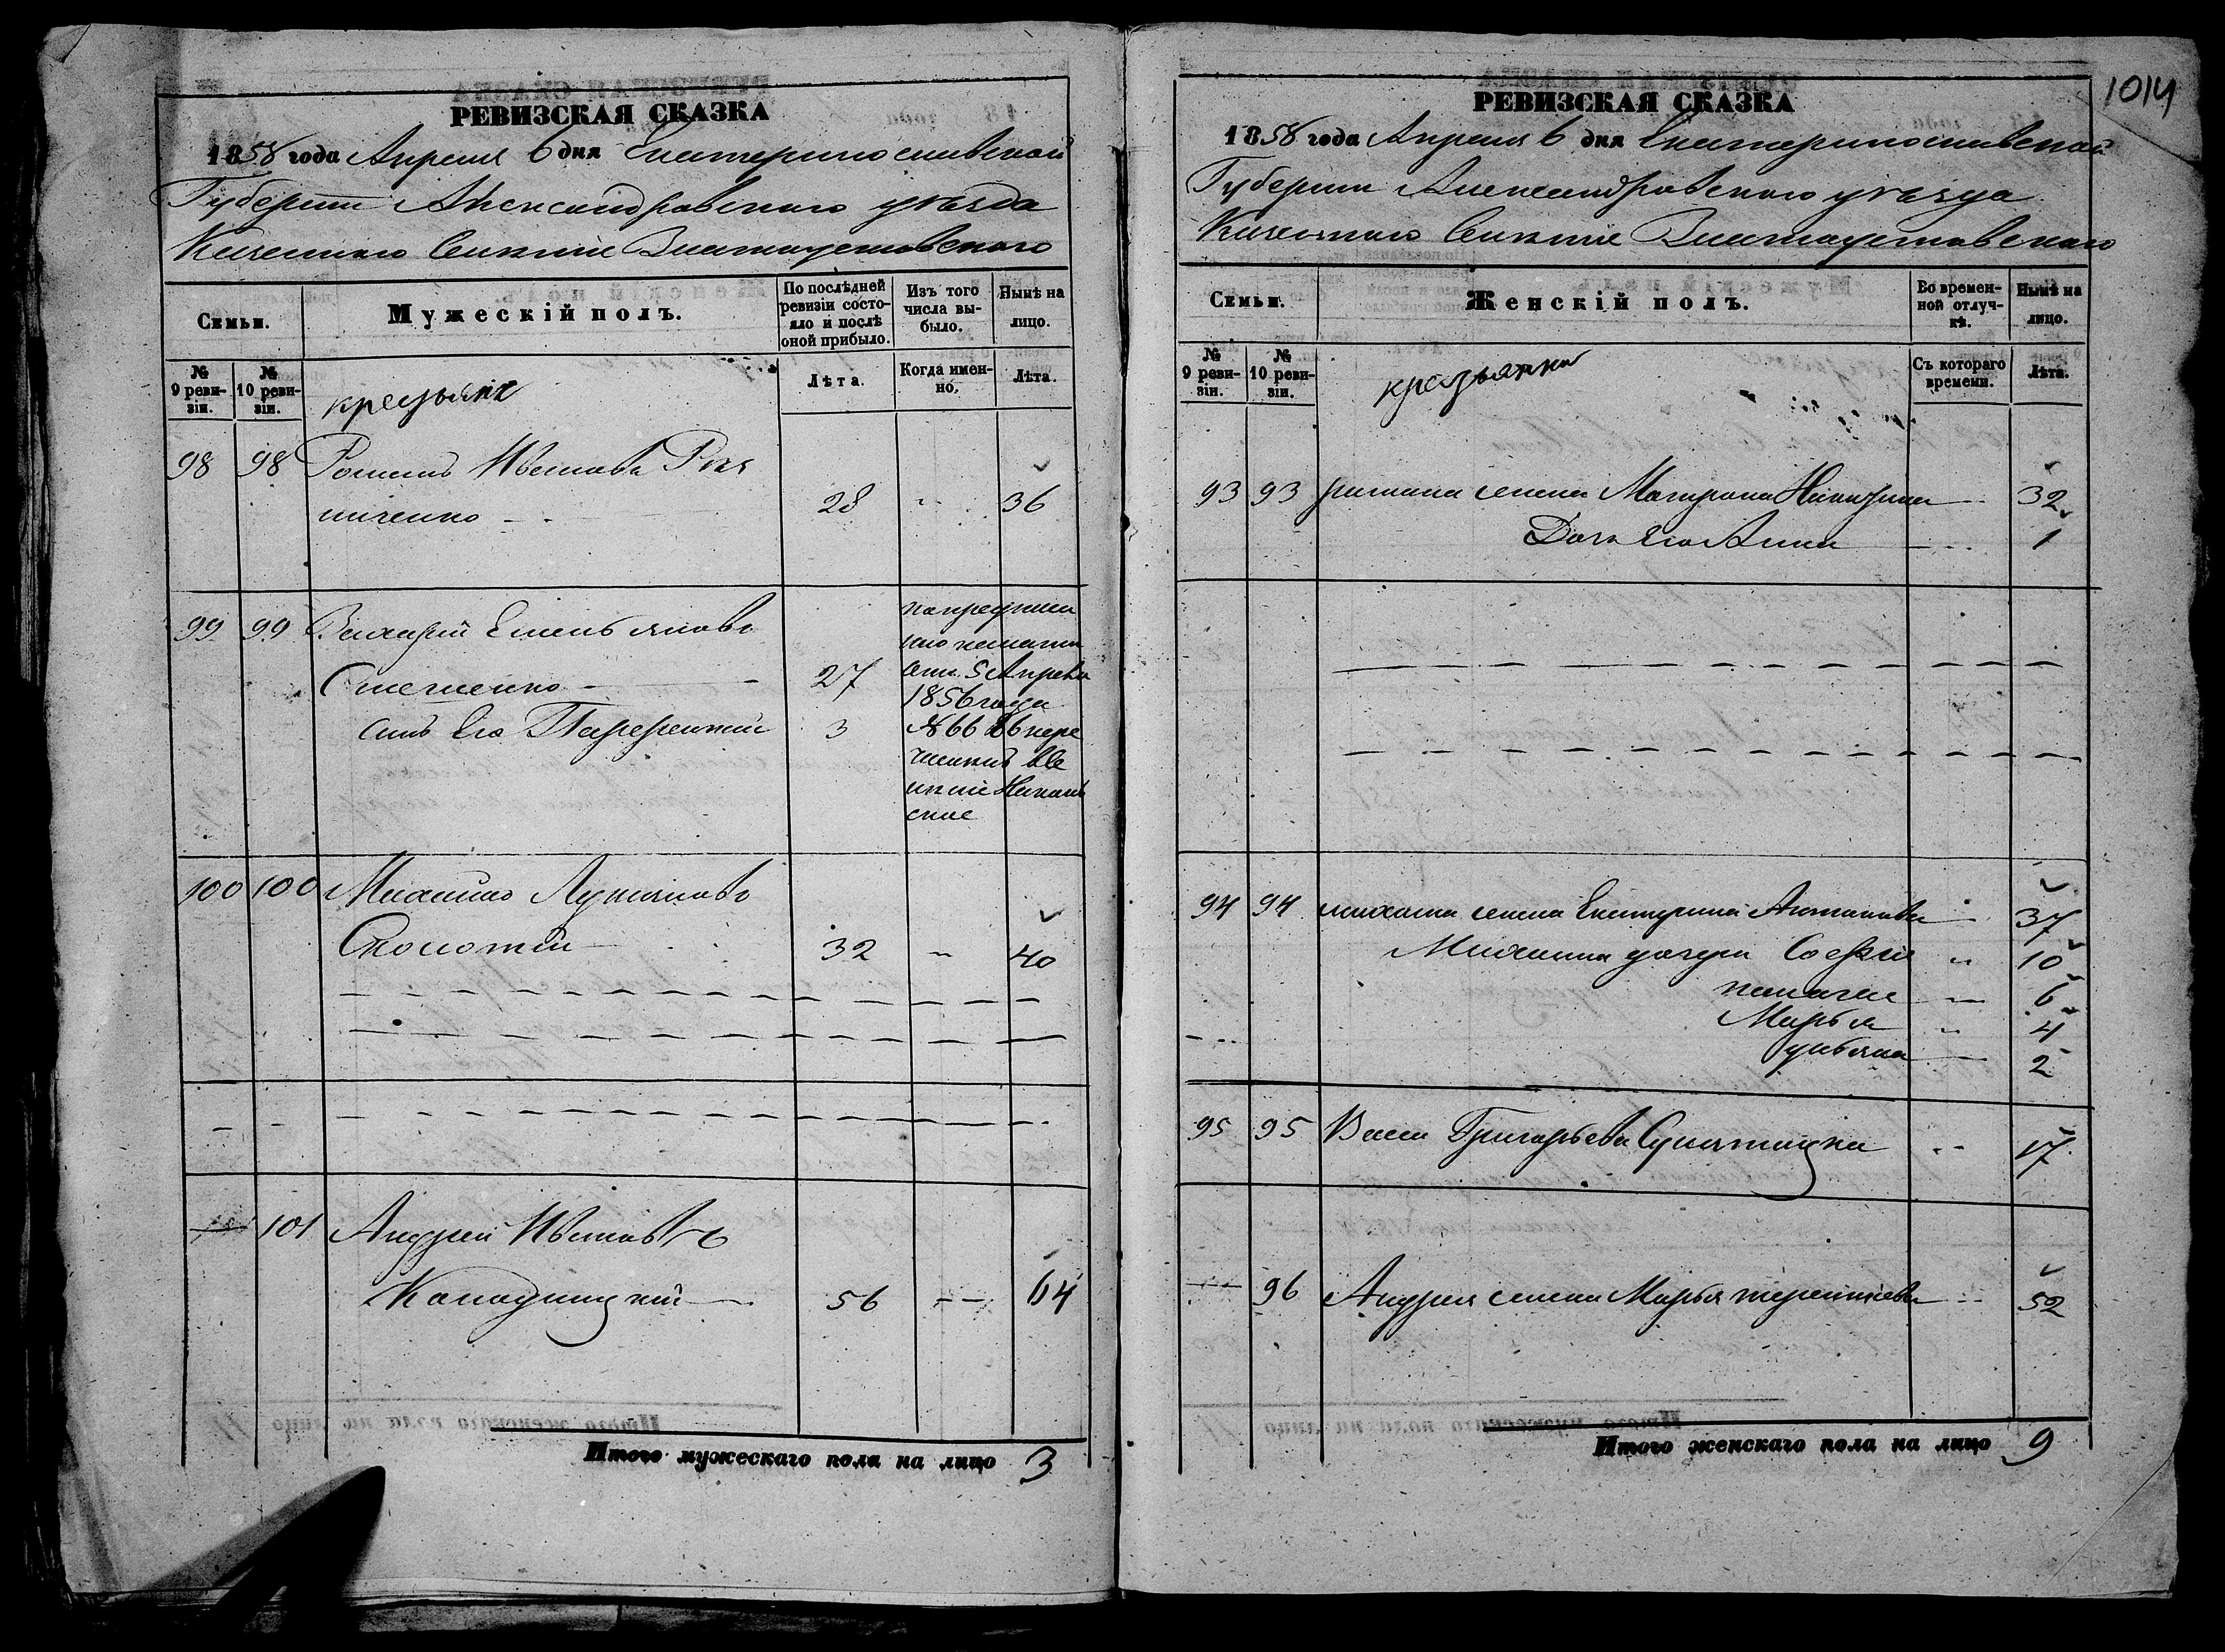 РЕВИЗСКАЯ СКАЗКА
1858 года Апреля 6 дня Екатеринославской
Губернии Александровского уезда
Казенного Селения Златоустовского
Семьи.
Мужескій полъ.
По послѣдней ревизіи состояло и послѣ оной прибыло.
Изъ того числа выбыло.
Нынѣ на лицо.
№ 9 ревизіи.
№ 10 ревизіи.
крестьяне
Лѣта.
Когда именно.
Лѣта.
98 98 Романъ Ивановъ
28 36
99 99 Захарій Емельяновъ
27 от 5 Апреля
1856 года
сынъ Его 3 № 66
100 100 Михайло Лукьяновъ
32 40
101 Андрей Ивановъ
56 64
Итого мужескаго пола на лицо 3
1014
РЕВИЗСКАЯ СКАЗКА
1858 года Апреля 6 дня Екатеринославской
Губернии Александровского уезда
Казенного Селения Златоустовского
Семьи.
Женскій полъ.
Во временной отлучкѣ.
Нынѣ на лицо.
№ 9 ревизіи.
№ 10 ревизіи.
крестьянки
Съ котораго времени.
Лѣта.
93 93 романа жена Матрона 32
Дочь Его Анна 1
94 94 михайла жена Екатерина Антонова 37
Михайла дочери Софія 10
пелагея 6
Марья 4
ульяна 2
95 95 Васса Григорьева 17
96 Андрея жена Марья терентіева 52
Итого женскаго пола на лицо 9